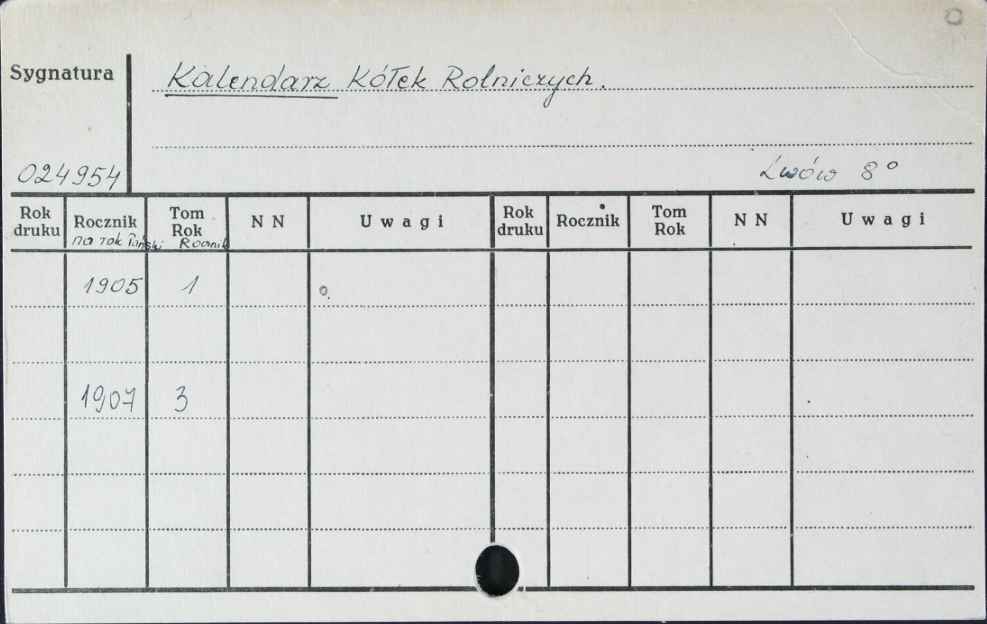 Sygnatura
Kalendarz Kółek Rolniczych.
024954
Lwów 8°
Rok druku Rocznik Tom Rok N N Uwagi Rok druku Rocznik Tom Rok N N Uwagi
na rok Roczni
1905 1
1907 3